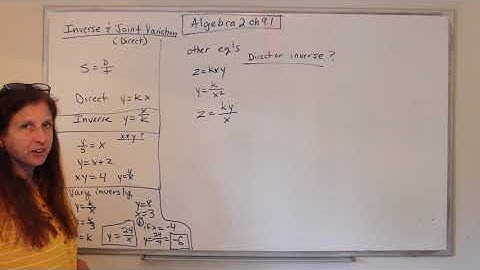 Algebra 2 ch 9.1
Inverse & Joint Variation
(Direct)
S = D/T
Direct y = kx
Inverse y = x/k
x x y ?
y/5 = x
y = x + 2
xy = 4
Vary inversly
y = k/x
y = 8
x = 3
if x = -4
= k
y = 24/x
= -6
other eq's
Direct or inverse ?
z = kxy
y = k/x²
z = ky/x